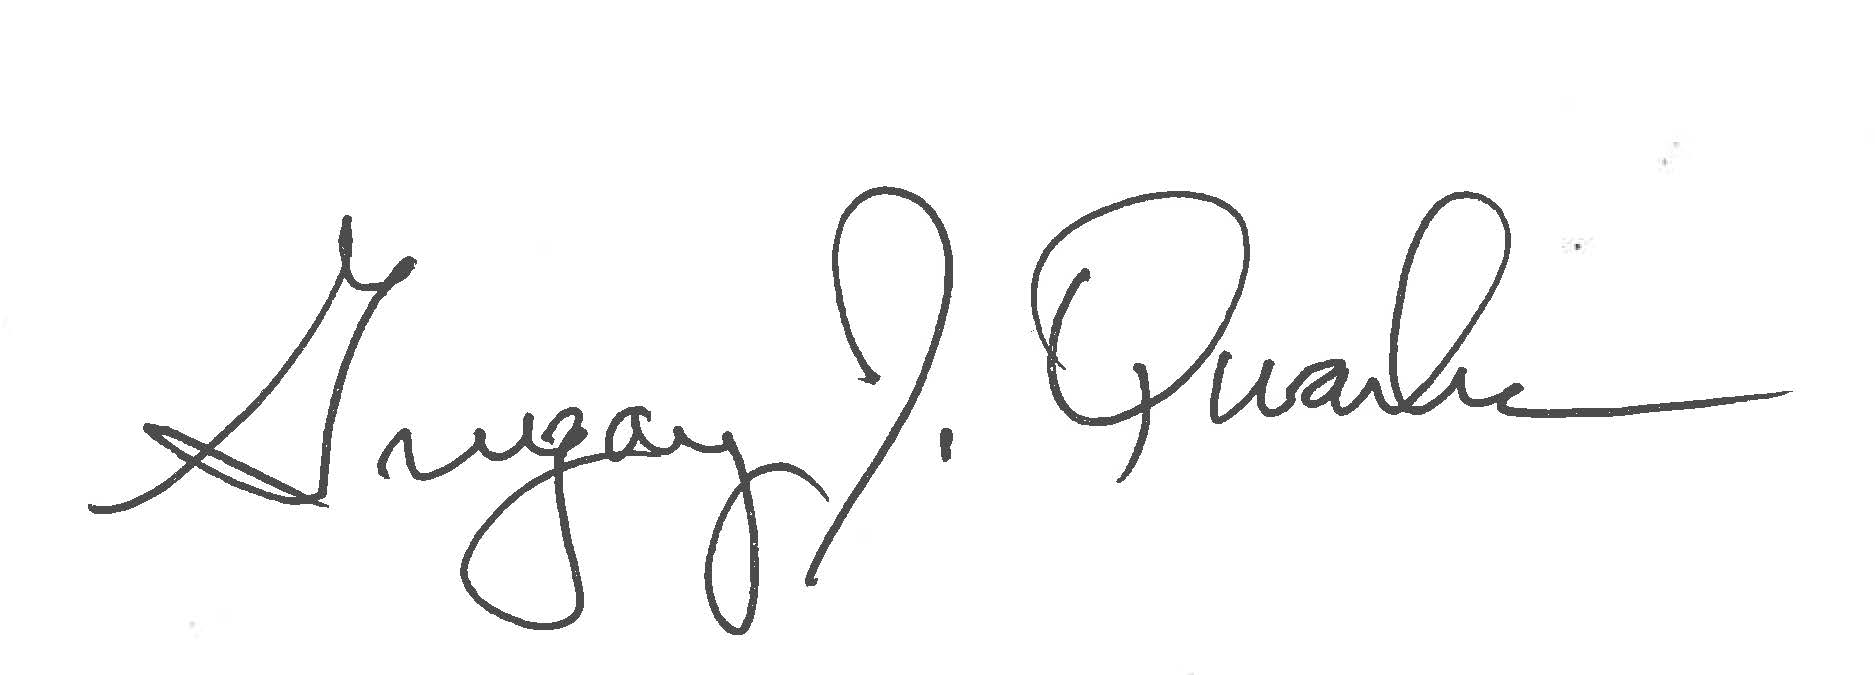 Gregory J. Quarles